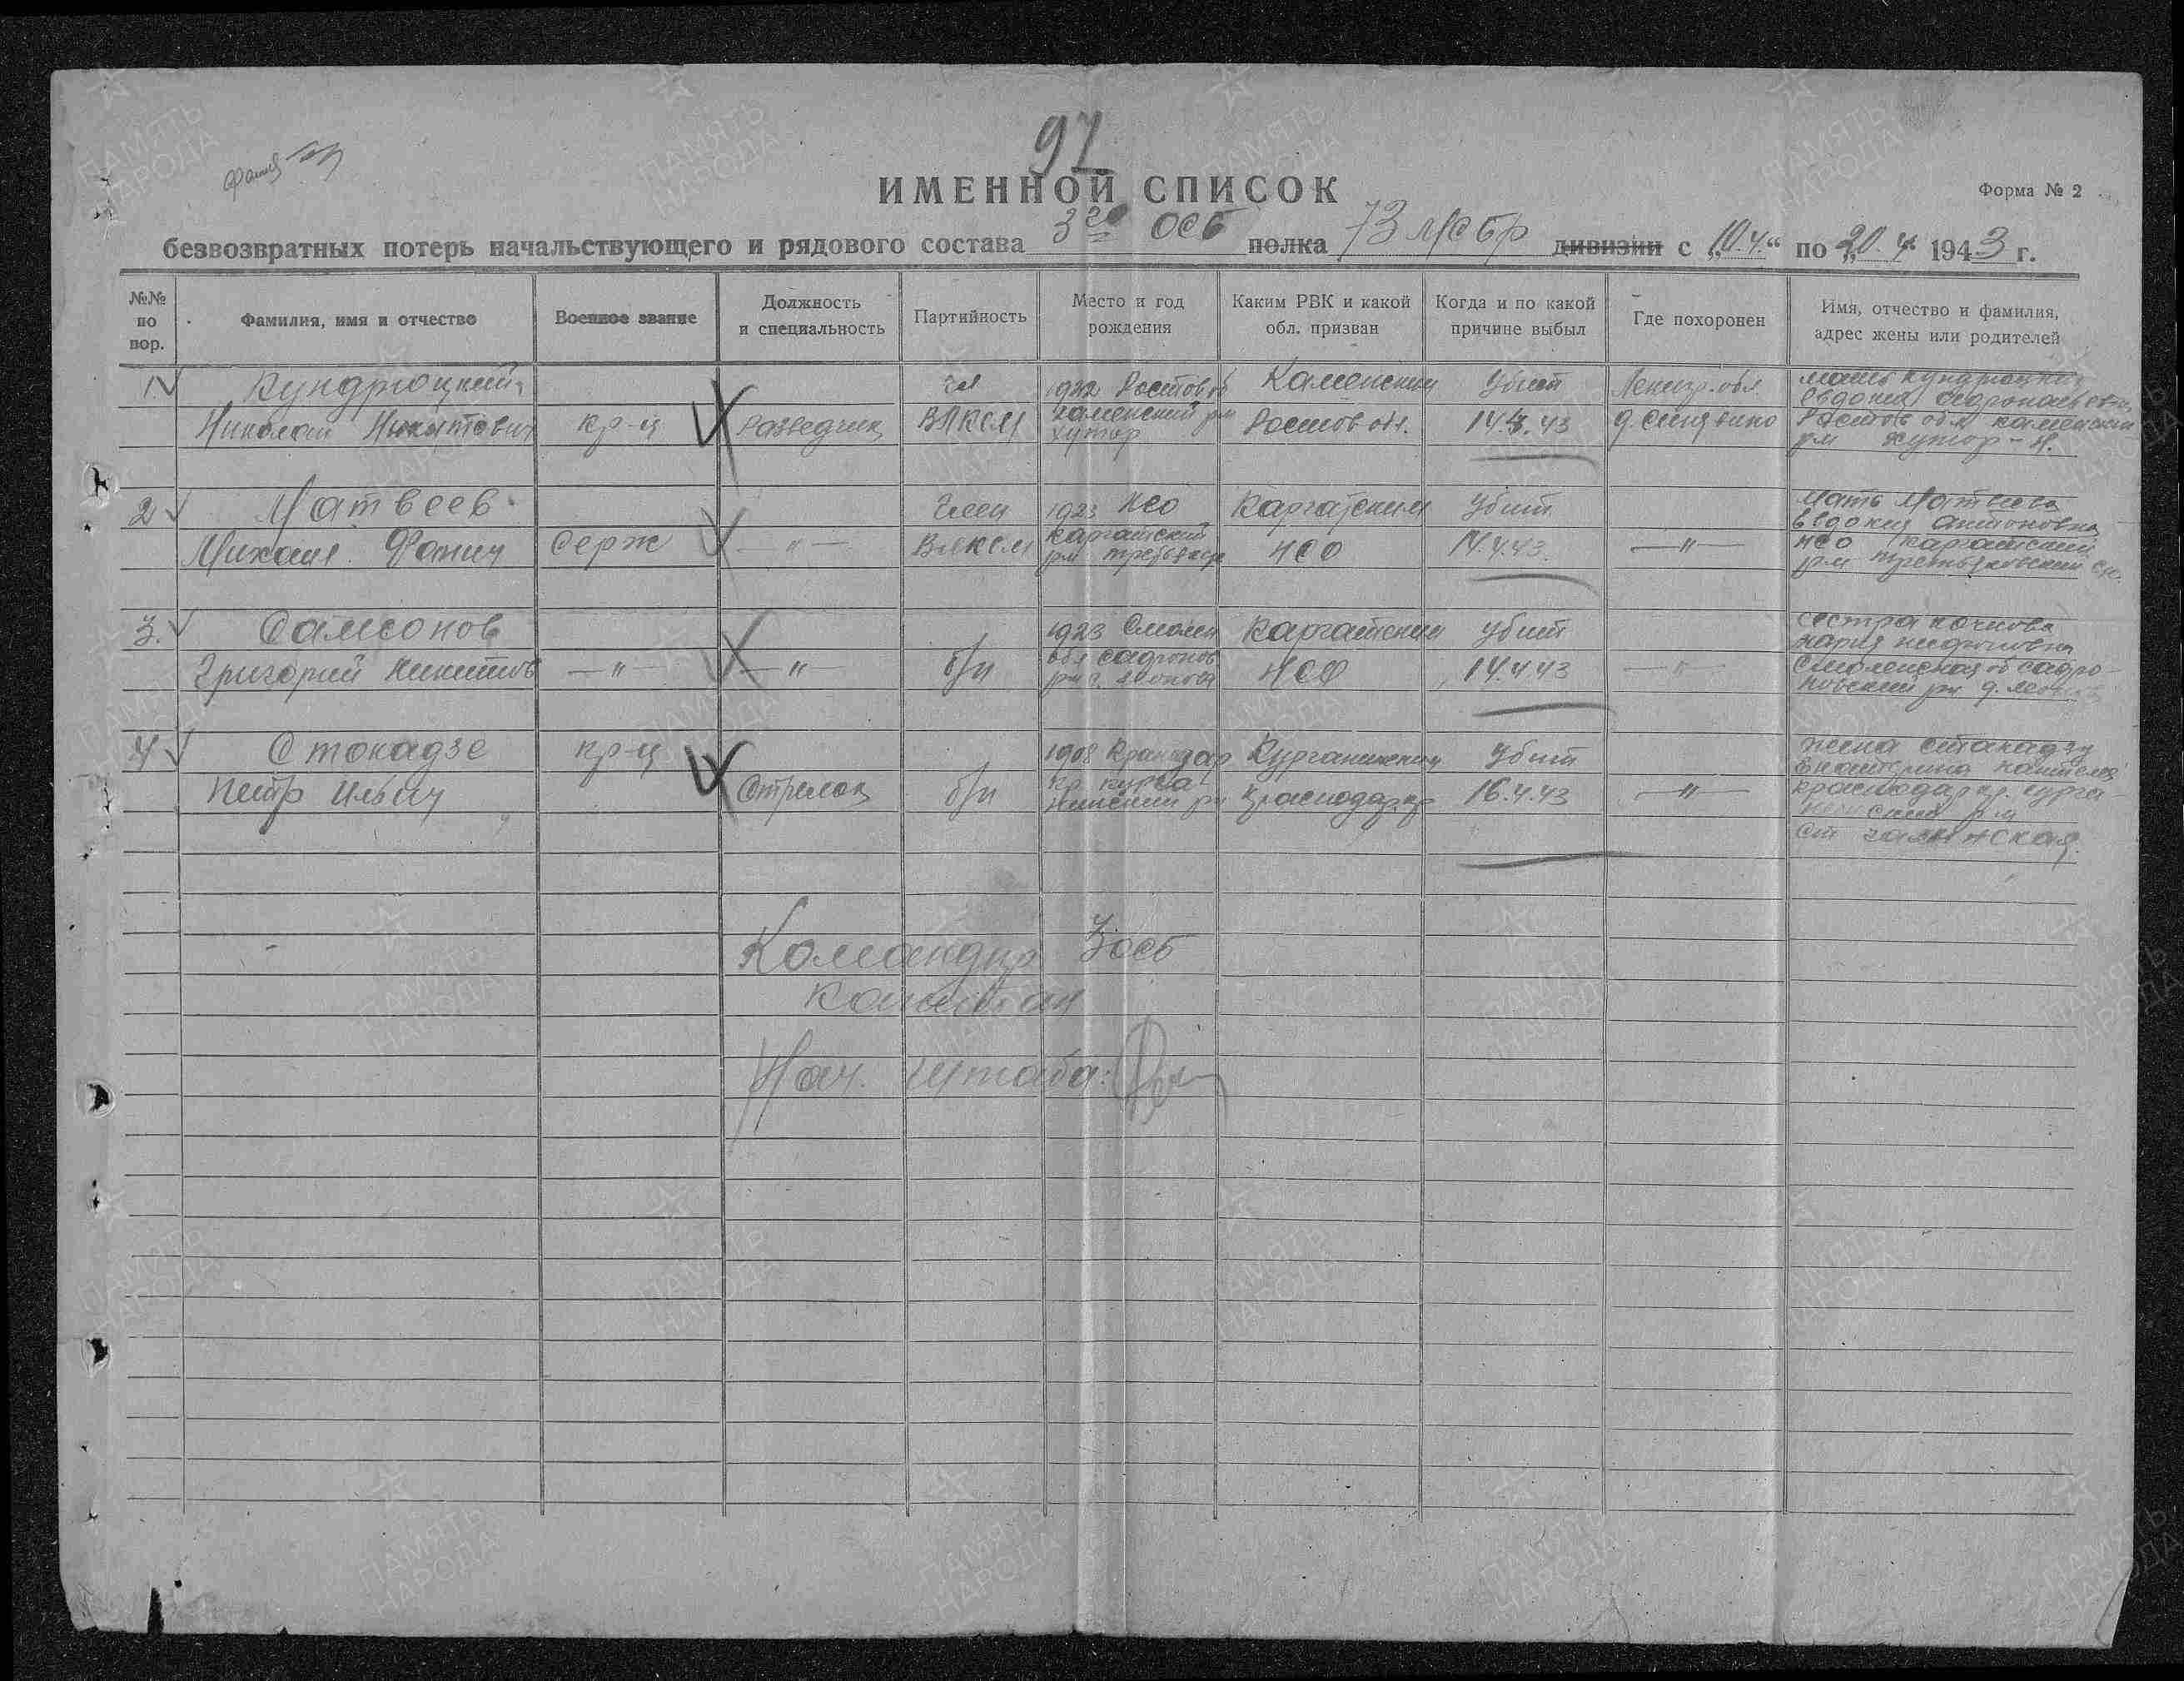 97
ИМЕННОЙ СПИСОК
Форма № 2
безвозвратных потерь начальствующего и рядового состава 3го ОСБ полка 73 МСбр дивизии с „10.4“ по „20.4“ 1943 г.
№№ по пор.
Фамилия, имя и отчество
Военное звание
Должность и специальность
Партийность
Место и год рождения
Каким РВК и какой обл. призван
Когда и по какой причине выбыл
Где похоронен
Имя, отчество и фамилия, адрес жены или родителей
1 Кундрюцкий Николай Никитович
кр-ц
разведчик
чл ВЛКСМ
1922 Ростов об Каменский рн хутор
Каменским Ростов обл.
Убит 14.4.43
Ленигр. обл. д. Синявино
мать Кундрюцкая Евдокия
Ростов обл Каменский рн хутор - Н.
2 Матвеев Михаил Фомич
Серж
— " —
Член ВЛКСМ
1923 НСО Каргатский рн
Каргатским НСО
Убит 14.4.43
— " —
Мать Матвеева Евдокия Антоновна НСО Каргатский рн Третьяковский с/с.
3. Самсонов Григорий Никитов
— " —
— " —
б/п
1923 Смолен обл Сафронов рн д.
Каргатским НСО
Убит 14.4.43
— " —
Сестра
Мария
Смоленская об Сафроновский рн д.
4 Стокадзе Петр Ильич
кр-ц
Стрелок
б/п
1908 Краснодар кр. Курганинский рн
Курганинским Краснодар кр
Убит 16.4.43
— " —
жена Стакадзе Екатерина
Краснодар кр. Курганинский р-н
ст
Командир 3 осб
капитан
Нач. Штаба:
ПАМЯТЬ НАРОДА